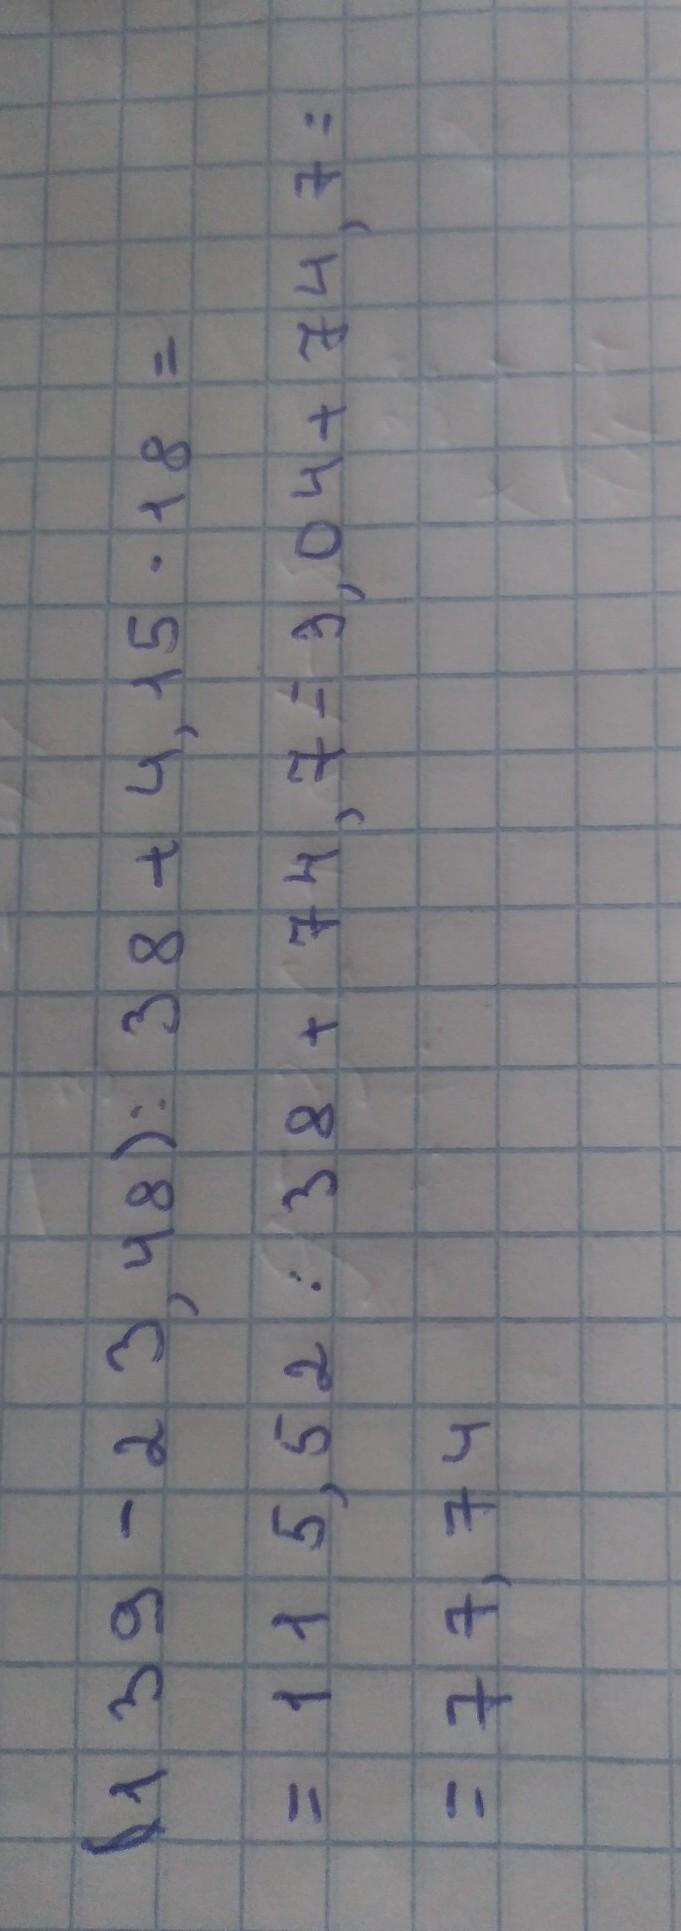 (139-23,48):38+4,15·18=
=115,52:38+74,7=3,04+74,7=
=77,74